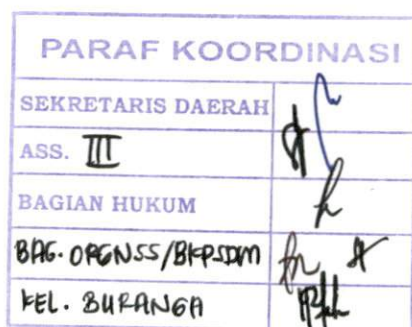 PARAF KOORDINASI
SEKRETARIS DAERAH
ASS. III
BAGIAN HUKUM
BAG. ORGNSS/BKPSDM
KEL. BURANGA